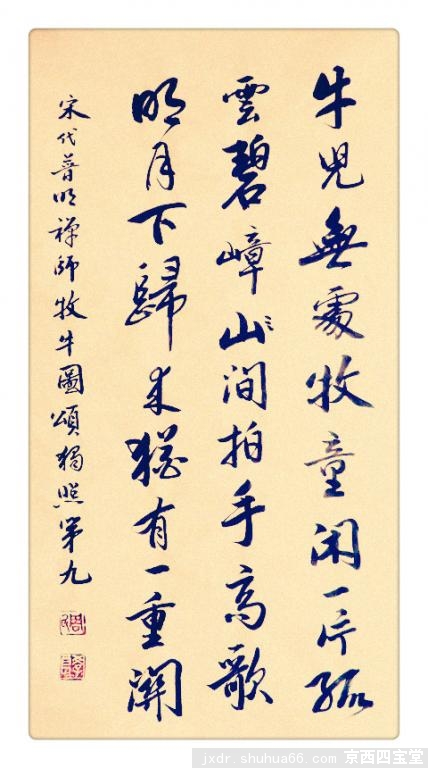 牛児無處牧童閑一片孤
雲碧嶂山間拍手高歌
明月下歸來猶有一重關
宋代普明禅師牧牛圖頌獨照第九
jxdr.shuhua66.com 京西四宝堂